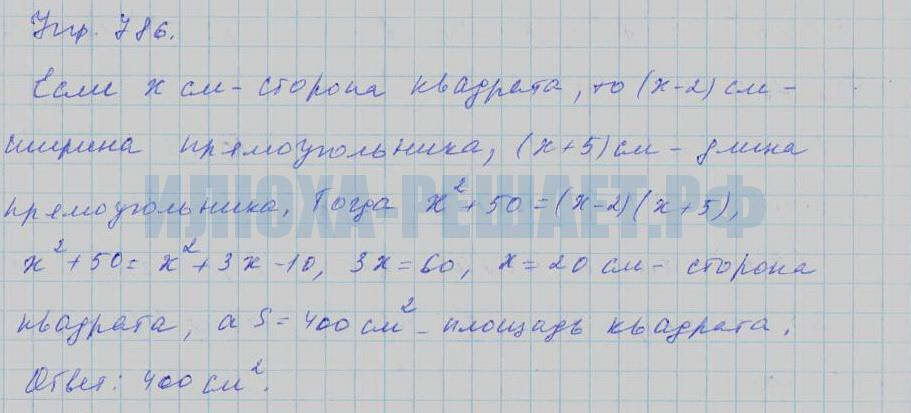 Упр. 786.
Если x см - сторона квадрата, то (x-2) см -
ширина прямоугольника, (x+5) см - длина
ИЛЮХА-РЕШАЕТ.РФ
прямоугольника. Тогда x² + 50 = (x-2)(x+5),
x² + 50 = x² + 3x - 10, 3x = 60, x = 20 см - сторона
квадрата, а S = 400 см² - площадь квадрата.
Ответ: 400 см².